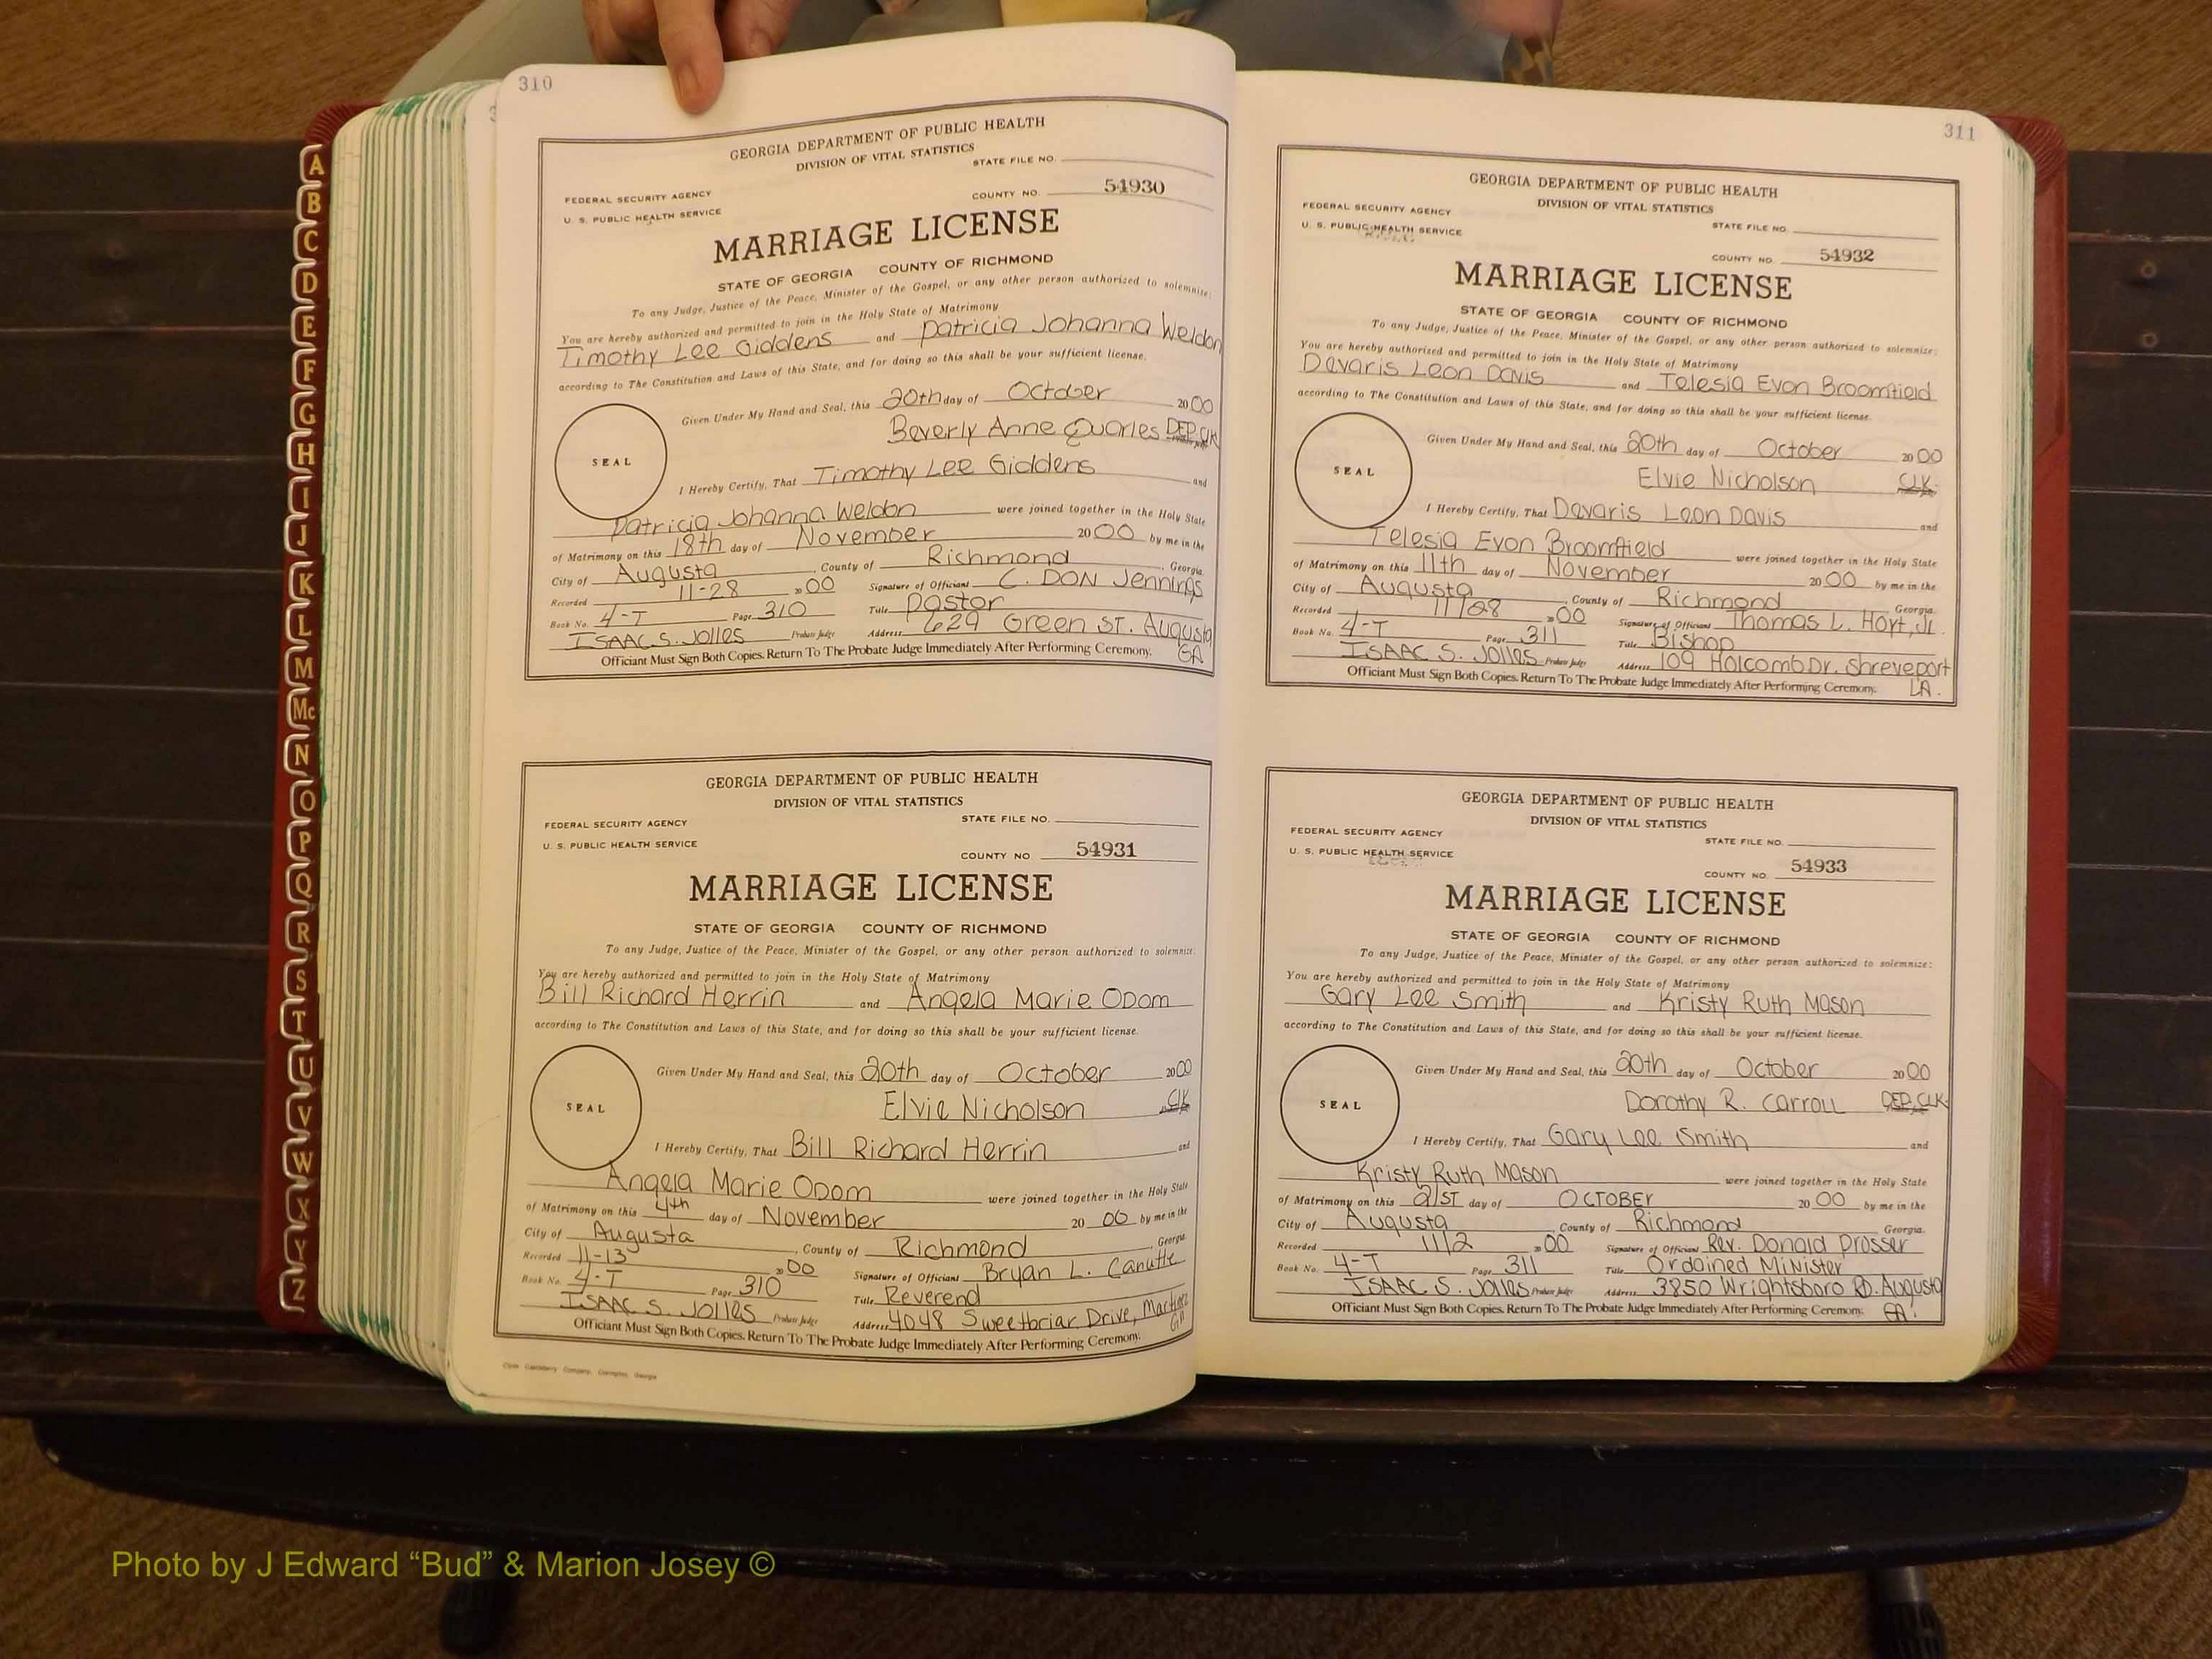 310
GEORGIA DEPARTMENT OF PUBLIC HEALTH
DIVISION OF VITAL STATISTICS
STATE FILE NO.
FEDERAL SECURITY AGENCY
COUNTY NO. 54930
U. S. PUBLIC HEALTH SERVICE
MARRIAGE LICENSE
STATE OF GEORGIA COUNTY OF RICHMOND
To any Judge, Justice of the Peace, Minister of the Gospel, or any other person authorized to solemnize:
You are hereby authorized and permitted to join in the Holy State of Matrimony
Timothy Lee Giddens and Patricia Johanna Weldon
according to The Constitution and Laws of this State, and for doing so this shall be your sufficient license.
Given Under My Hand and Seal, this 20th day of October 2000
Beverly Anne Quarles DEP. CLK
SEAL
I Hereby Certify, That Timothy Lee Giddens and
Patricia Johanna Weldon were joined together in the Holy State
of Matrimony on this 18th day of November 2000 by me in the
City of Augusta, County of Richmond, Georgia.
Recorded 11-28 2000 Signature of Officiant C. DON Jennings
Book No. 4-T Page 310 Title Pastor
ISAAC S. JOLLES Probate Judge Address 629 Green ST. Augusta
GA
Officiant Must Sign Both Copies. Return To The Probate Judge Immediately After Performing Ceremony.
GEORGIA DEPARTMENT OF PUBLIC HEALTH
DIVISION OF VITAL STATISTICS
STATE FILE NO.
FEDERAL SECURITY AGENCY
U. S. PUBLIC HEALTH SERVICE
COUNTY NO 54931
MARRIAGE LICENSE
STATE OF GEORGIA COUNTY OF RICHMOND
To any Judge, Justice of the Peace, Minister of the Gospel, or any other person authorized to solemnize:
You are hereby authorized and permitted to join in the Holy State of Matrimony
Bill Richard Herrin and Angela Marie Odom
according to The Constitution and Laws of this State, and for doing so this shall be your sufficient license.
Given Under My Hand and Seal, this 20th day of October 2000
Elvie Nicholson Clk
SEAL
I Hereby Certify, That Bill Richard Herrin and
Angela Marie Odom were joined together in the Holy State
of Matrimony on this 4th day of November 20 00 by me in the
City of Augusta, County of Richmond, Georgia.
Recorded 11-13 2000 Signature of Officiant Bryan L. Canutte
Book No. 4-T Page 310 Title Reverend
ISAAC S. JOLLES Probate Judge Address 4048 Sweetbriar Drive, Martinez
GA
Officiant Must Sign Both Copies. Return To The Probate Judge Immediately After Performing Ceremony.
311
GEORGIA DEPARTMENT OF PUBLIC HEALTH
DIVISION OF VITAL STATISTICS
FEDERAL SECURITY AGENCY
U. S. PUBLIC HEALTH SERVICE
STATE FILE NO.
COUNTY NO. 54932
MARRIAGE LICENSE
STATE OF GEORGIA COUNTY OF RICHMOND
To any Judge, Justice of the Peace, Minister of the Gospel, or any other person authorized to solemnize:
You are hereby authorized and permitted to join in the Holy State of Matrimony
Devaris Leon Davis and Telesia Evon Broomfield
according to The Constitution and Laws of this State, and for doing so this shall be your sufficient license.
Given Under My Hand and Seal, this 20th day of October 2000
Elvie Nicholson CLK.
SEAL
I Hereby Certify, That Devaris Leon Davis and
Telesia Evon Broomfield were joined together in the Holy State
of Matrimony on this 11th day of November 2000 by me in the
City of Augusta, County of Richmond, Georgia.
Recorded 11/28 2000 Signature of Officiant Thomas L. Hoyt, Jr.
Book No. 4-T Page 311 Title Bishop
ISAAC S. JOLLES Probate Judge Address 109 Holcomb Dr. Shreveport
LA.
Officiant Must Sign Both Copies. Return To The Probate Judge Immediately After Performing Ceremony.
GEORGIA DEPARTMENT OF PUBLIC HEALTH
DIVISION OF VITAL STATISTICS
FEDERAL SECURITY AGENCY
U. S. PUBLIC HEALTH SERVICE
STATE FILE NO.
COUNTY NO. 54933
MARRIAGE LICENSE
STATE OF GEORGIA COUNTY OF RICHMOND
To any Judge, Justice of the Peace, Minister of the Gospel, or any other person authorized to solemnize:
You are hereby authorized and permitted to join in the Holy State of Matrimony
Gary Lee Smith and Kristy Ruth Mason
according to The Constitution and Laws of this State, and for doing so this shall be your sufficient license.
Given Under My Hand and Seal, this 20th day of October 2000
Dorothy R. Carroll DEP. CLK
SEAL
I Hereby Certify, That Gary Lee Smith and
Kristy Ruth Mason were joined together in the Holy State
of Matrimony on this 21ST day of OCTOBER 2000 by me in the
City of Augusta, County of Richmond Georgia.
Recorded 11/2 2000 Signature of Officiant Rev. Donald Prosser
Book No. 4-T Page 311 Title Ordained Minister
ISAAC S. JOLLES Probate Judge Address 3850 Wrightsboro RD. Augusta
GA.
Officiant Must Sign Both Copies. Return To The Probate Judge Immediately After Performing Ceremony.
A
B
C
D
E
F
G
H
I
J
K
L
M
Mc
N
O
P
Q
R
S
T
U
V
W
X
Y
Z
Photo by J Edward “Bud” & Marion Josey ©